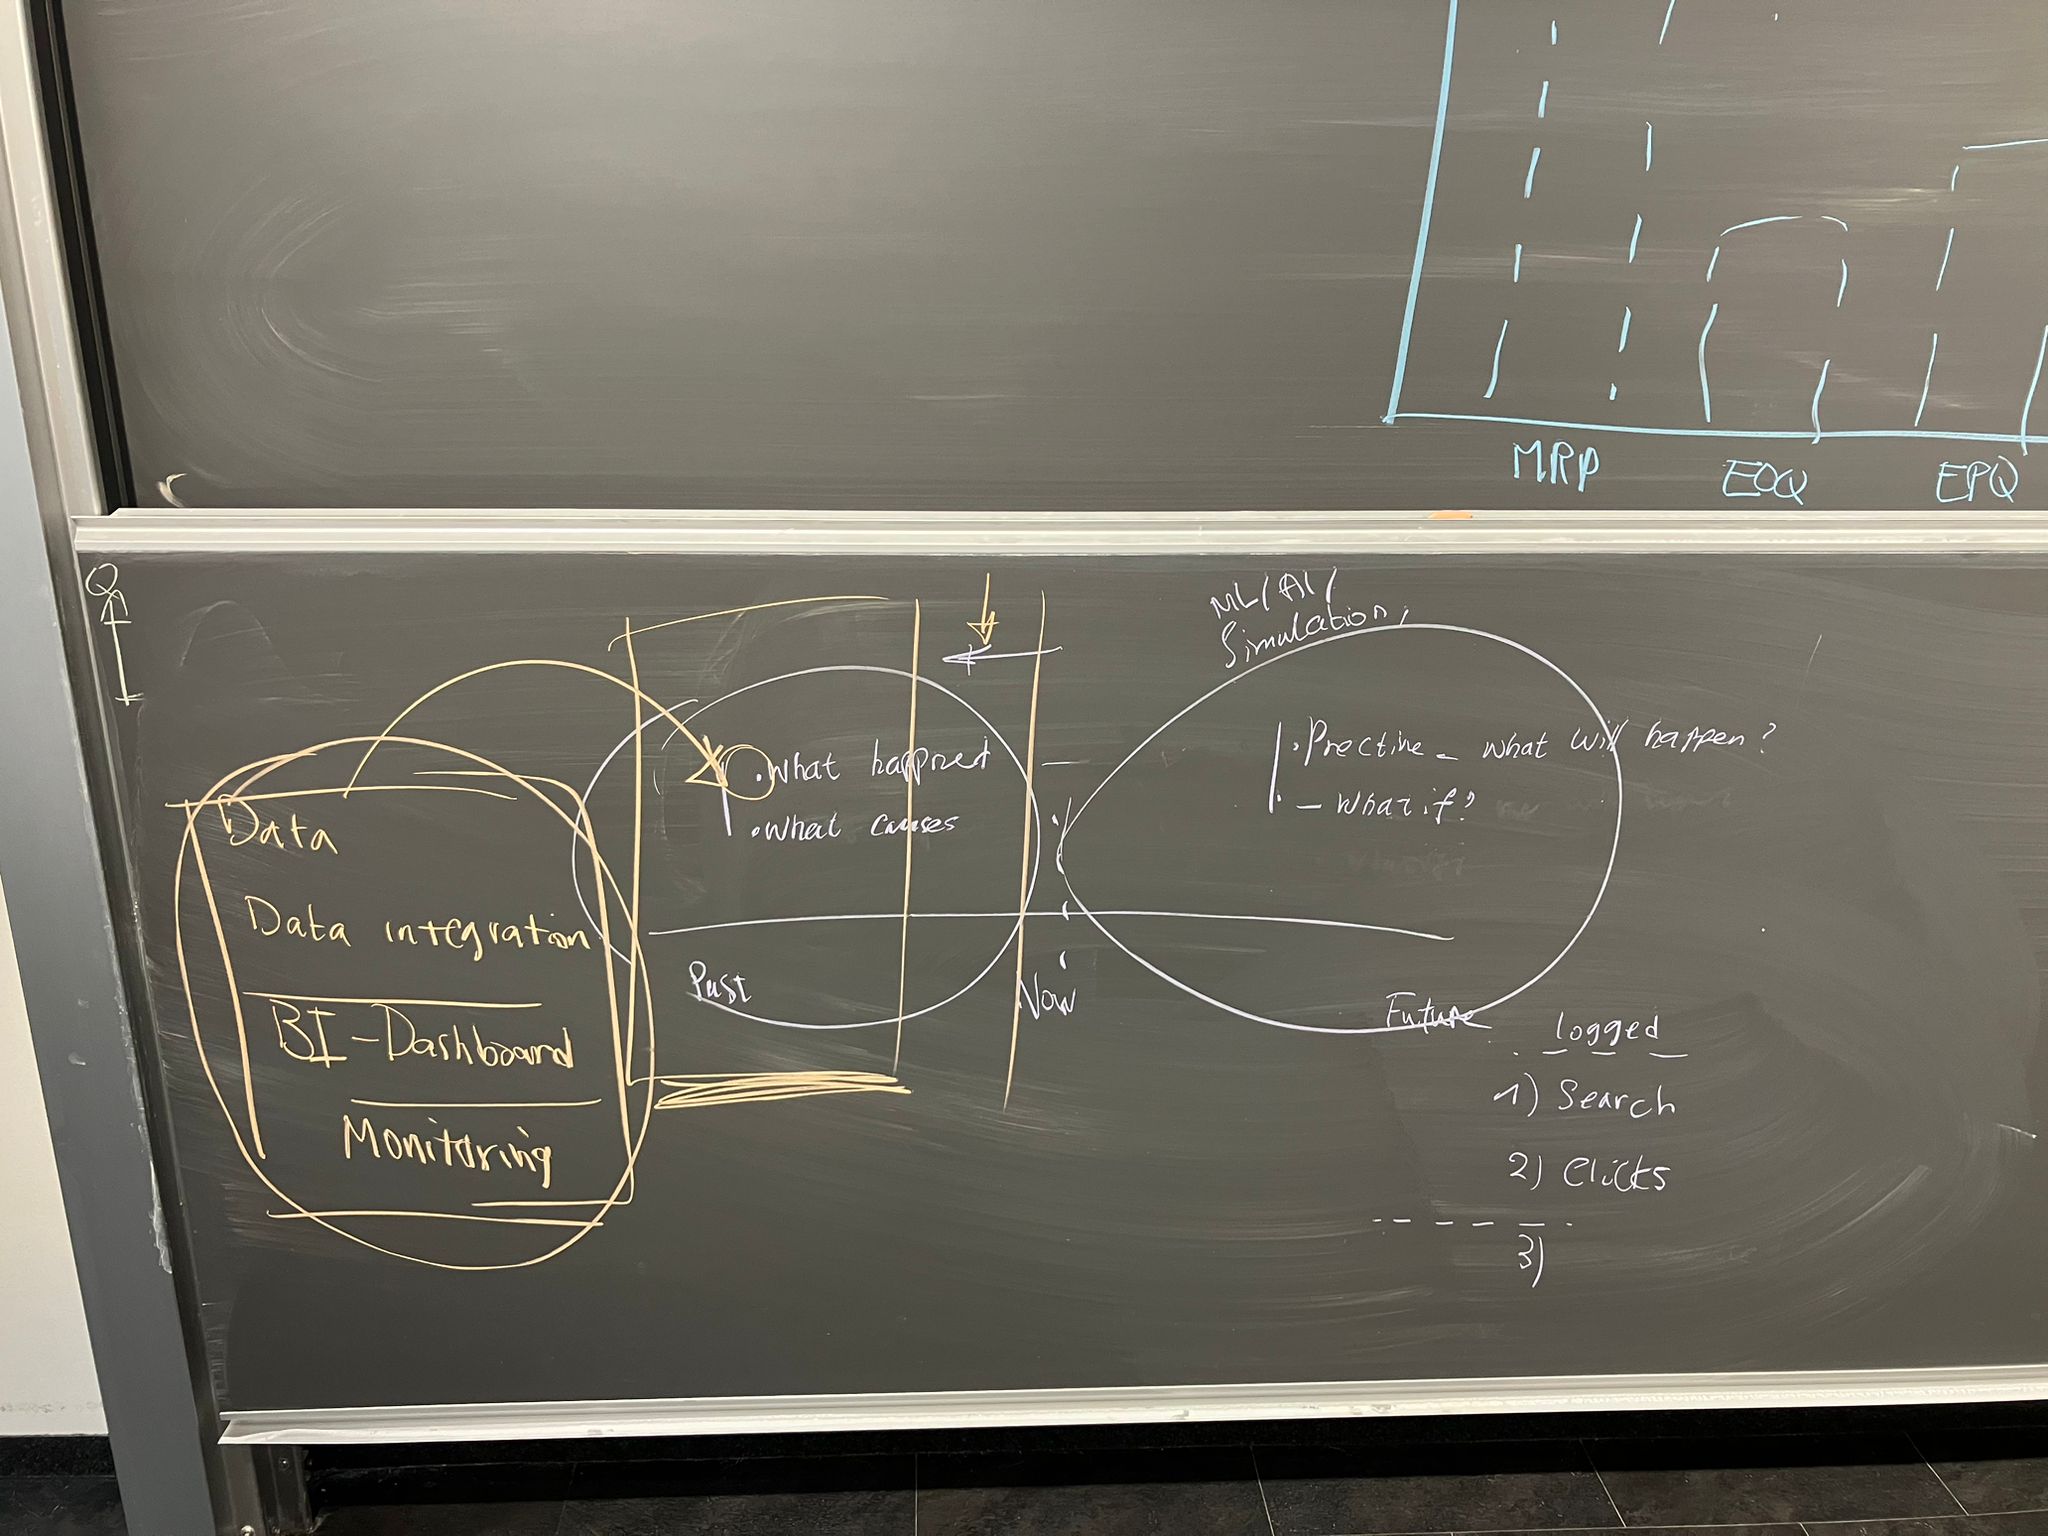 MRP EOQ EPQ
Q
ML/AI/
Simulation,
Data
Data integration
BI-Dashboard
Monitoring
.What happned
.What causes
Past
Now
. - What will happen?
. - What if?
Future
logged
1) Search
2) Clicks
3)